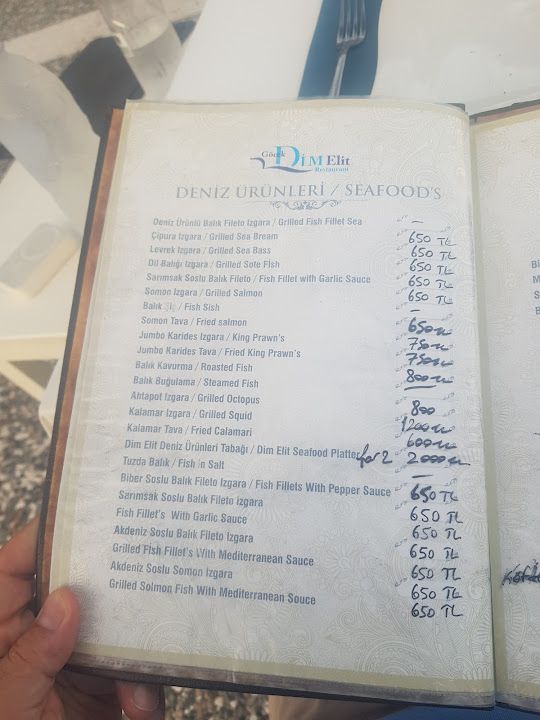 Göcek DİM Elit
Restaurant
DENİZ ÜRÜNLERİ / SEAFOOD'S
Deniz Ürünlü Balık Fileto Izgara / Grilled Fish Fillet Sea –
Çipura Izgara / Grilled Sea Bream 650 TL
Levrek Izgara / Grilled Sea Bass 650 TL
Dil Balığı Izgara / Grilled Sote Fish 650 TL
Sarımsak Soslu Balık Fileto / Fish Fillet with Garlic Sauce 650 TL
Somon Izgara / Grilled Salmon 650 TL
Balık / Fish Sish –
Somon Tava / Fried salmon 650 TL
Jumbo Karides Izgara / King Prawn's 750 TL
Jumbo Karides Tava / Fried King Prawn's 750 TL
Balık Kavurma / Roasted Fish 800 TL
Balık Buğulama / Steamed Fish
Ahtapot Izgara / Grilled Octopus 800
Kalamar Izgara / Grilled Squid 1200 TL
Kalamar Tava / Fried Calamari 600 TL
Dim Elit Deniz Ürünleri Tabağı / Dim Elit Seafood Platter for 2 2000 TL
Tuzda Balık / Fish in Salt –
Biber Soslu Balık Fileto Izgara / Fish Fillets With Pepper Sauce 650 TL
Sarımsak Soslu Balık Fileto Izgara 650 TL
Fish Fillet's With Garlic Sauce 650 TL
Akdeniz Soslu Balık Fileto Izgara 650 TL
Grilled Fish Fillet's With Mediterranean Sauce 650 TL
Akdeniz Soslu Somon Izgara 650 TL
Grilled Solmon Fish With Mediterranean Souce 650 TL